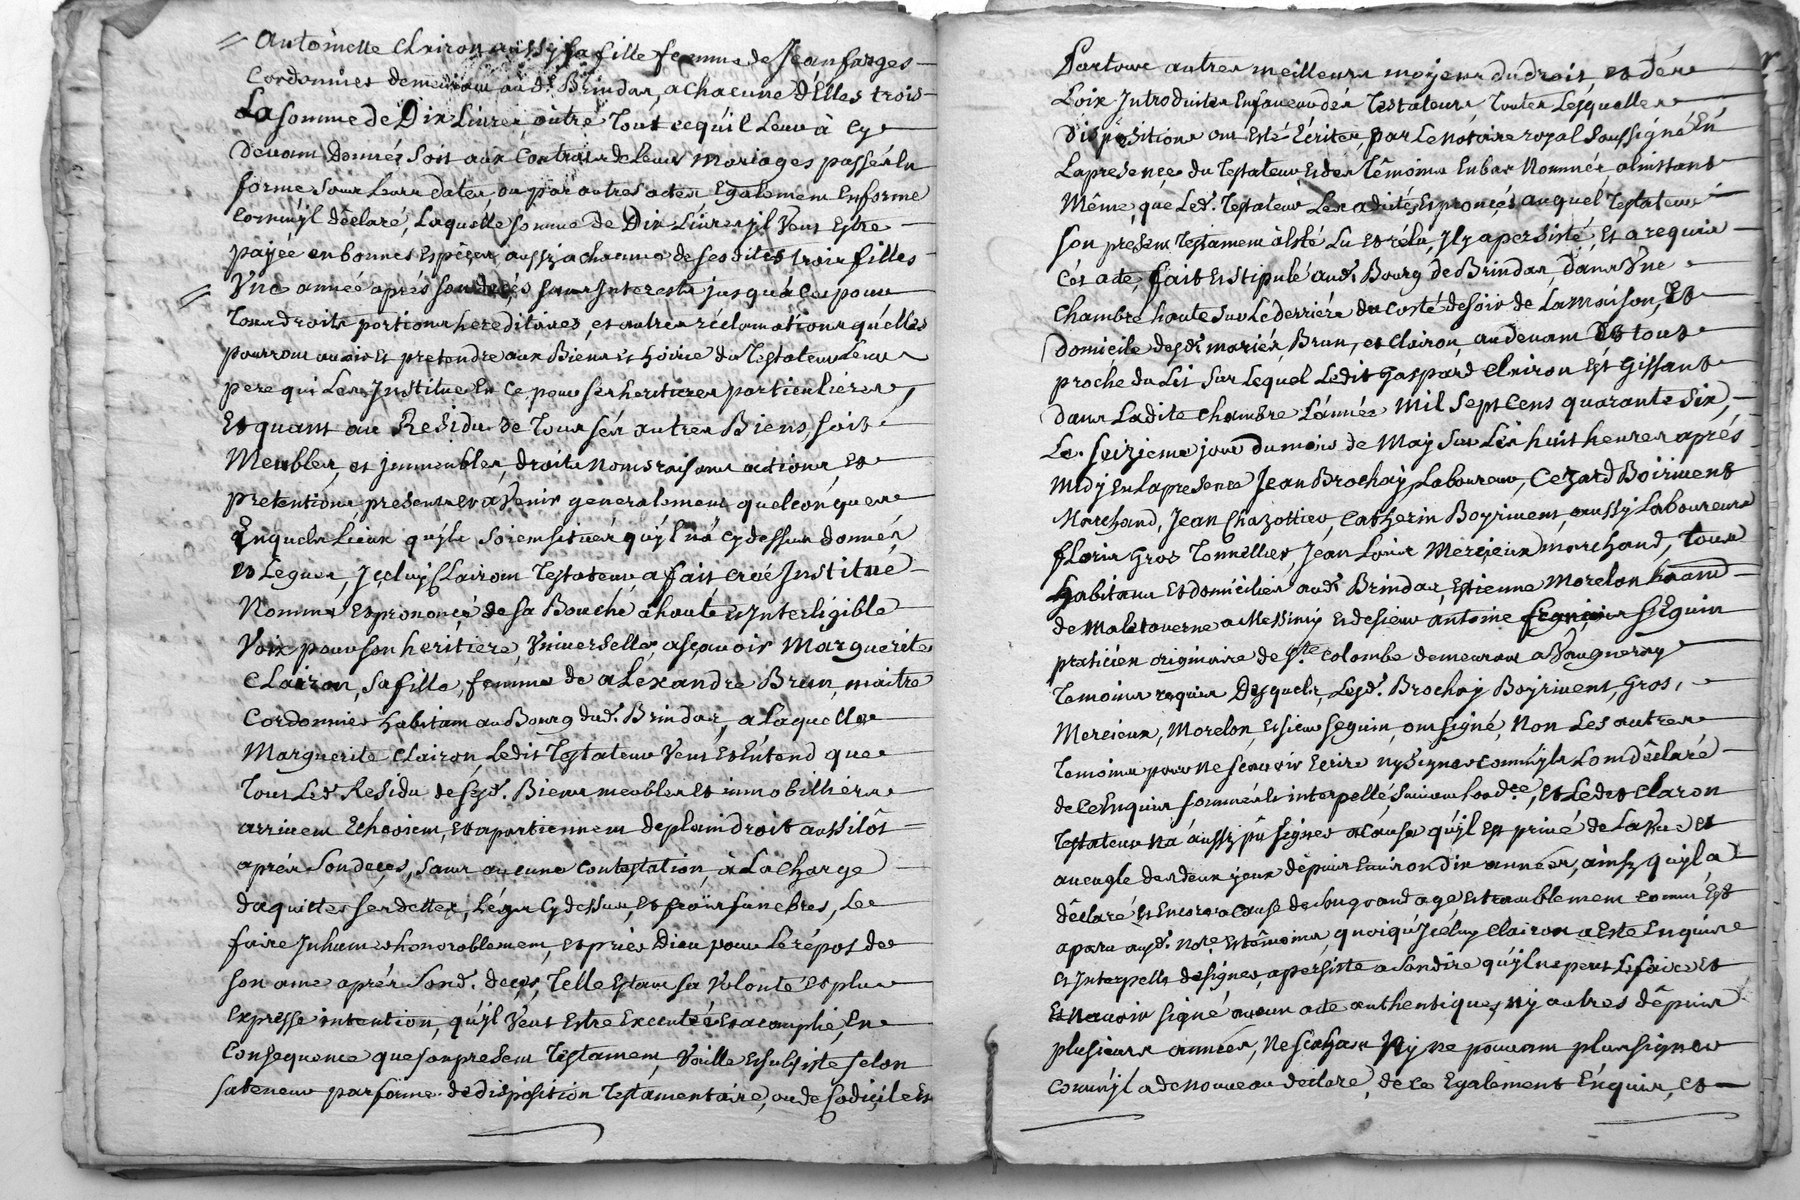 Antoinette Clairon aussy sa fille femme de Jean farges
Cordonnier demeurant aud.t Brindas, a chacune d'Elles trois
La somme de Dix Livres, outre Tout ce qu'il Leur à Cy
devant Donnéz soit aux Contrats de Leurs Mariages passés En
forme sous Leurs dates, ou par autres actes, Egalement En forme
Com'il déclaré, Laquelle somme de Dix Livres jl Veut Estre
payée en bonnes Espêces aussy a chacune de ses dites trois filles
Une année aprés son décés sans Interests jusqu'à Ce, pour
Tous droits portions hereditaires, et autres réclamations qu'elles
pourront avoir et pretendre aux Biens et hoirie du Testateur Leur
pere qui Les Institue En Ce pour ses heritieres particuliéres,
Et quant au Residu de Tous sés autres Biens, soit
Meubles, et jmmeubles, droits Noms raisons actions et
pretentions presents et a Venir generalement quelconques
Enquels Lieux qu'yls soient situés qu'yl n'a Cy dessus donnés
et Legués, Jceluy Clairon Testateur a fait creé Institué
Nommé et prononcé de sa Bouche à haute et Interligible
Voix pour son heritiere Universelle, asçavoir Marguerite
Clairon, sa fille, femme de alexandre Brun, maitre
Cordonnier habitant au Bourg dud.t Brindas, a Laquelle
Marguerite Clairon, Ledit Testateur Veut Et Entend que
Tout Led.t Residu de sesd.t Biens meubles et immobilliéres
arrivent Echoient, et apartiennent de plain droit aussitôt
aprés son decés, sans aucune Contestation, à La Charge
d'aquitter ses dettes, Légs Cy dessus, et frais funebres, Le
faire Inhumer honorablement, et prier Dieu pour Le répos de
son ame aprés sond. deces, Telle Etant sa Volonté et plus
Expresse intention, qu'yl Veut Estre Executée et acomplie, En
Consequence que son present Testament, Vaille et subsiste selon
sa teneur par forme de disposition Testamentaire, ou de Codicile Et
Partout autres meilleurs moyens du droit et dés
Loix Introduites En faveur dés Testateurs Toutes Lesquelles
dispositions ont Esté Ecrites, par Le Notaire royal Soussigné En
La presence du Testateur et des Témoins En bas Nommés a linstant
Même, que Led.t Testateur Les a dités et proncés auquel Testateur
son present Testament à esté Lu et rélu, Jl y a persisté, Et a requis
Cét acte, fait et stipulé aud.t Bourg de Brindas, dans Une
Chambre haute sur Le derriére du Costé de soir de La maison, Et
domicile desd.ts mariés, Brun, et Clairon, au devant Et tout
proche du Lit sur Lequel Ledit Gaspard Clairon Est Gissant
dans Ladite Chambre L'année Mil Sept Cens quarante Six,
Le seizieme jour du mois de May sur Les huit heures aprés
Midy En La presence Jean Brochay Laboureur, Cezard Boirivent
Marchand, Jean Chazottier, Catherin Boyrivent, aussy Laboureurs
floris Gros Tonnellier, Jean Louis Mercieux marchand, Tous
Habitans et domiciliés aud.t Brindas, Etienne Morelon
de Malataverne a Messimy et de sieur antoine Seguin
praticien originaire de S.te Colombe demeurant a Vaugneray
Temoins requis Desquels, Lesd.t Brochay Boyrivent, Gros,
Mercieux, Morelon, Et sieur seguin, ont signé, Non Les autres
Temoins pour Ne sçavoir Ecrire ny signer Com'yls L'ont déclaré
de ce Enquis sommés et interpellé suivant Lord.ce, Et Ledit Claron
Testateur N'a aussy pû signer a Cause qu'yl est privé de La Vue et
aveugle des deux yeux dépuis Environ dix années, ainsy qu'yl, a
déclaré et Encore a Cause de son grand age et tramblement comm' Est
aparu aud.t Not.e et témoins, quoiqu'Jceluy Clairon a Esté Enquis
Et Interpellé de signer, a persisté a Son dire qu'yl ne peut Le faire et
N'avoir signé aucun acte authentiques, ny autres dépuis
plusieurs années, Ne Ny Ne pouvant plus signer
Com'yl a de Nouveau déclaré, de ce Egalement Enquis, et